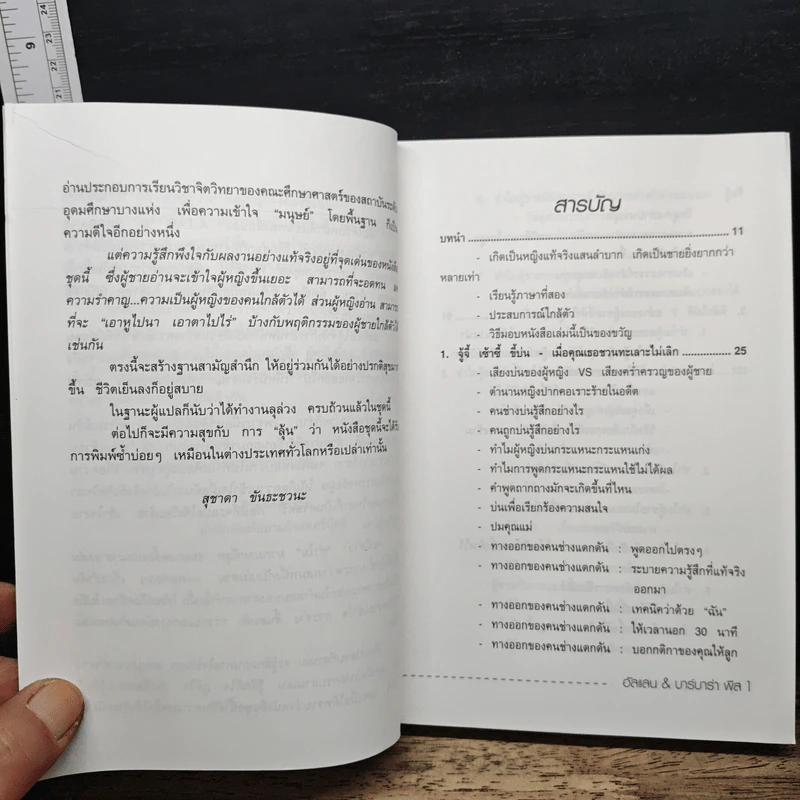 อ่านประกอบการเรียนวิชาจิตวิทยาของคณะศึกษาศาสตร์ของสถาบันระดับ
อุดมศึกษาบางแห่ง เพื่อความเข้าใจ "มนุษย์" โดยพื้นฐาน ก็เป็น
ความดีใจอีกอย่างหนึ่ง
แต่ความรู้สึกพึงใจกับผลงานอย่างแท้จริงอยู่ที่จุดเด่นของหนังสือ
ชุดนี้ ซึ่งผู้ชายอ่านจะเข้าใจผู้หญิงขึ้นเยอะ สามารถที่จะอดทน
ความรำคาญ...ความเป็นผู้หญิงของคนใกล้ตัวได้ ส่วนผู้หญิงอ่าน
ที่จะ "เอาหูไปนา เอาตาไปไร่" บ้างกับพฤติกรรมของผู้ชายใกล้ตัวได้
เช่นกัน
ตรงนี้จะสร้างฐานสามัญสำนึก ให้อยู่ร่วมกันได้อย่างปรกติสุขมาก
ขึ้น ชีวิตเย็นลงก็อยู่สบาย
ในฐานะผู้แปลก็นับว่าได้ทำงานลุล่วง ครบถ้วนแล้วในชุดนี้
ต่อไปก็จะมีความสุขกับ การ "ลุ้น" ว่า หนังสือชุดนี้จะได้รับ
การพิมพ์ซ้ำบ่อยๆ เหมือนในต่างประเทศทั่วโลกหรือเปล่าเท่านั้น
สุชาดา ขันธะชวนะ
สารบัญ
บทนำ ........................................................ 11
- เกิดเป็นหญิงแท้จริงแสนลำบาก เกิดเป็นชายยิ่งยากกว่า
หลายเท่า
- เรียนรู้ภาษาที่สอง
- ประสบการณ์ใกล้ตัว
- วิธีมอบหนังสือเล่มนี้เป็นของขวัญ
1. จู้จี้ เซ้าซี้ ขี้บ่น - เมื่อคุณเธอชวนทะเลาะไม่เลิก ................. 25
- เสียงบ่นของผู้หญิง VS เสียงคร่ำครวญของผู้ชาย
- ตำนานหญิงปากคอเราะร้ายในอดีต
- คนช่างบ่นรู้สึกอย่างไร
- คนถูกบ่นรู้สึกอย่างไร
- ทำไมผู้หญิงบ่นกระแหนะกระแหนเก่ง
- ทำไมการพูดกระแหนะกระแหนใช้ไม่ได้ผล
- คำพูดถากถางมักจะเกิดขึ้นที่ไหน
- บ่นเพื่อเรียกร้องความสนใจ
- ปมคุณแม่
- ทางออกของคนช่างแดกดัน : พูดออกไปตรงๆ
- ทางออกของคนช่างแดกดัน : ระบายความรู้สึกที่แท้จริง
ออกมา
- ทางออกของคนช่างแดกดัน : เทคนิคว่าด้วย "ฉัน"
- ทางออกของคนช่างแดกดัน : ให้เวลานอก 30 นาที
- ทางออกของคนช่างแดกดัน : บอกกติกาของคุณให้ลูก
อัลแลน & บาร์บาร่า พีส 1